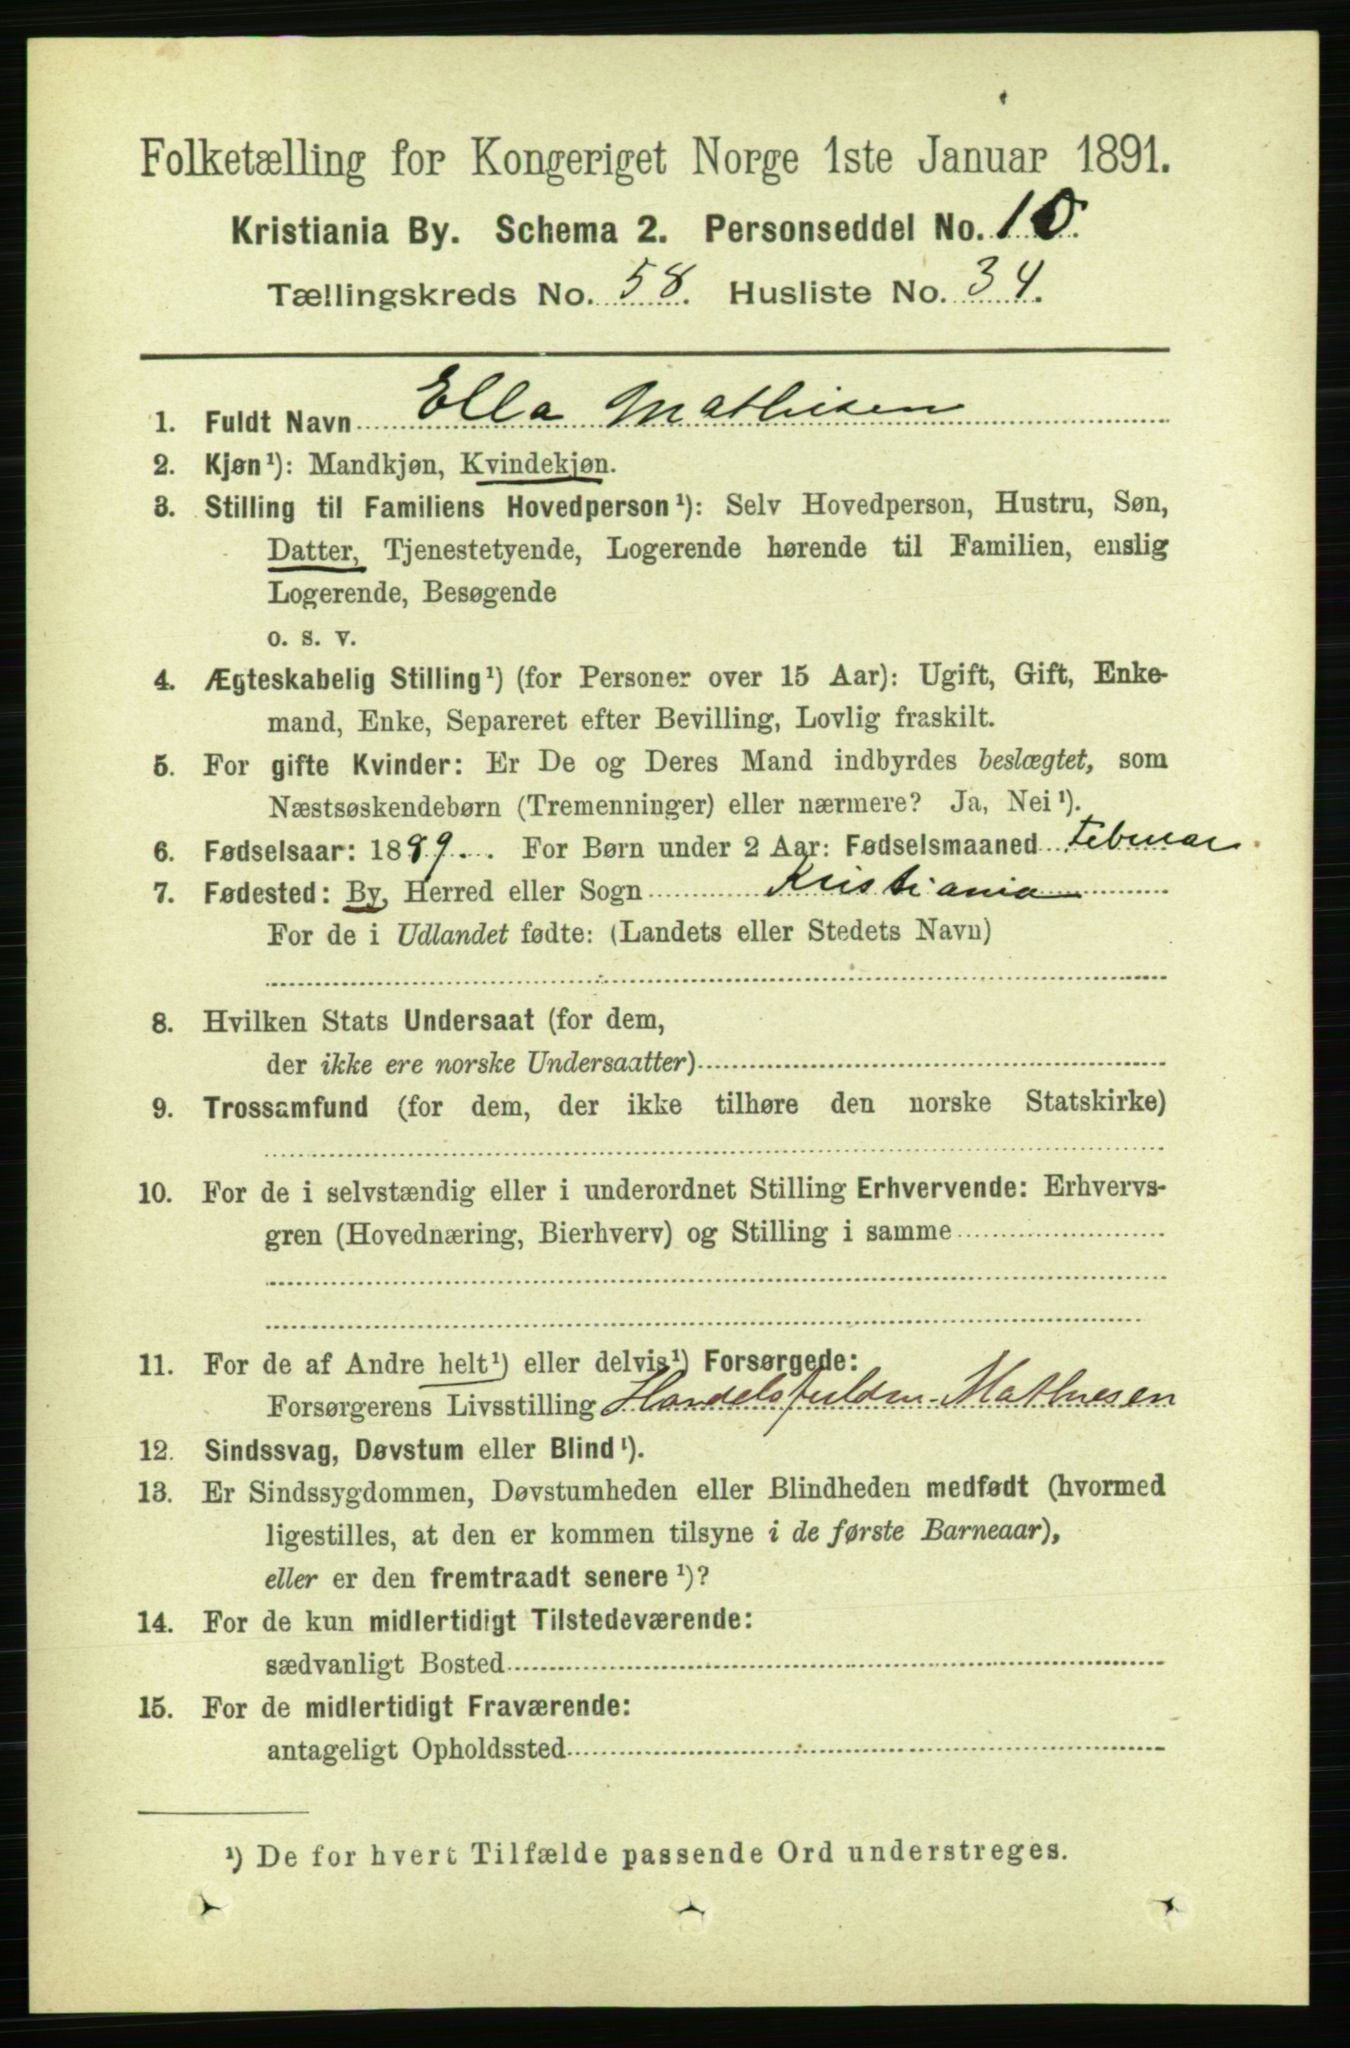 Folketælling for Kongeriget Norge 1ste Januar 1891.
Kristiania By. Schema 2. Personseddel No. 10.
Tællingskreds No. 58. Husliste No. 34.
1. Fuldt Navn Ella Mathiesen
2. Kjøn¹): Mandkjøn, Kvindekjøn.
3. Stilling til Familiens Hovedperson¹): Selv Hovedperson, Hustru, Søn,
Datter, Tjenestetyende, Logerende hørende til Familien, enslig
Logerende, Besøgende
o. s. v.
4. Ægteskabelig Stilling¹) (for Personer over 15 Aar): Ugift, Gift, Enke-
mand, Enke, Separeret efter Bevilling, Lovlig fraskilt.
5. For gifte Kvinder: Er De og Deres Mand indbyrdes beslægtet, som
Næstsøskendebørn (Tremenninger) eller nærmere? Ja, Nei¹).
6. Fødselsaar: 1889. For Børn under 2 Aar: Fødselsmaaned Februar.
7. Fødested: By, Herred eller Sogn Kristiania
For de i Udlandet fødte: (Landets eller Stedets Navn)
8. Hvilken Stats Undersaat (for dem,
der ikke ere norske Undersaatter)
9. Trossamfund (for dem, der ikke tilhøre den norske Statskirke)
10. For de i selvstændig eller i underordnet Stilling Erhvervende: Erhvervs-
gren (Hovednæring, Bierhverv) og Stilling i samme
11. For de af Andre helt¹) eller delvis¹) Forsørgede:
Forsørgerens Livsstilling Mathiesen
12. Sindssvag, Døvstum eller Blind¹).
13. Er Sindssygdommen, Døvstumheden eller Blindheden medfødt (hvormed
ligestilles, at den er kommen tilsyne i de første Barneaar),
eller er den fremtraadt senere¹)?
14. For de kun midlertidigt Tilstedeværende:
sædvanligt Bosted
15. For de midlertidigt Fraværende:
antageligt Opholdssted
¹) De for hvert Tilfælde passende Ord understreges.